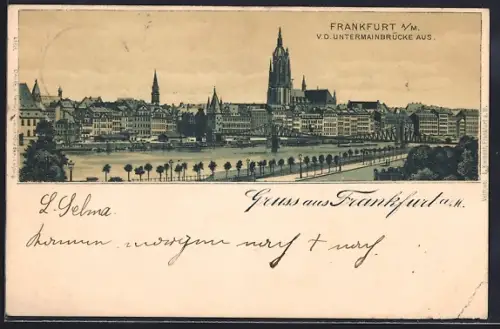 FRANKFURT A/M.
V.D. UNTERMAINBRÜCKE AUS.
Gruss aus Frankfurt a. M.
L. Selma.
kommen morgen nach + nach